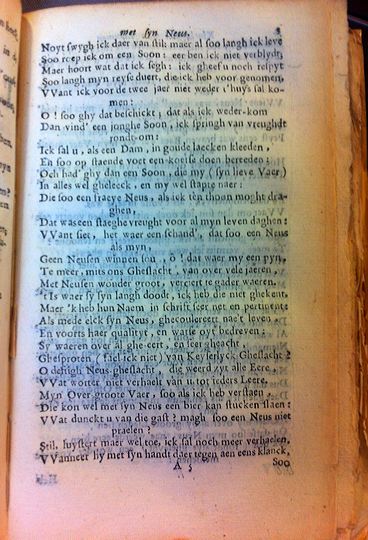 met syn Neus.
Noyt swygh ick daer van stil maer al soo langh ick leve
Soo roep ick om een Soon: eer ben ick niet verblydt,
Maer hoort wat dat ick segh: ick gheef u noch respyt
Soo langh myn reyse duert, die ick heb voor genomen,
VVant ick voor de twee jaer niet weder 't huys sal ko-
men:
O! soo ghy dat beschickt, dat als ick weder-kom
Dan vind' een jonghe Soon, ick springh van vreughdt
rondt-om:
Ick sal u, als een Dam, in goude laecken kleeden,
En soo op staende voet een koetse doen bereeden:
Och had' ghy dan een Soon, die my (syn lieve Vaer)
In alles wel gheleeck, en my wel stapte naer:
Die soo een fraeye Neus, als ick ten thoon moght dra-
ghen,
Dat was een staeghe vreught voor al myn leven daghen:
VVant siet, het waer een schand', dat soo een Neus
als myn,
Geen Neusen winnen sou, ô! dat waer my een pyn,
Te meer, mits ons Gheslacht, van over vele jaeren,
Met Neusen wonder groot, verciert te gader waeren.
't Is waer sy syn langh doodt, ick heb die niet ghekent,
Maer 'k heb hun Naem in schrift seer net en pertinente
Als mede elck syn Neus, gheconterfeyt nae't leven,
En voorts haer qualityt, en watse oyt bedreven:
Sy waeren over al ghe-eert, en seer gheacht,
Ghesproten (siel ick niet) van Keyserlyck Gheslacht?
O deftigh Neus-gheslacht, die weerd zyt alle Eere,
VVat wort'er niet verhaelt van u tot ieders Leere.
Myn Over-groote Vaer, soo als ick heb verstaen,
Die kon wel met syn Neus een bier kan stucken slaen:
VVat dunckt u van die gast? magh soo een Neus niet
praelen?
Stil, luystert maer wel toe, ick sal noch meer verhaelen,
VVanneer hy met syn handt daer tegen aen eens klanck,
A 3
Soo